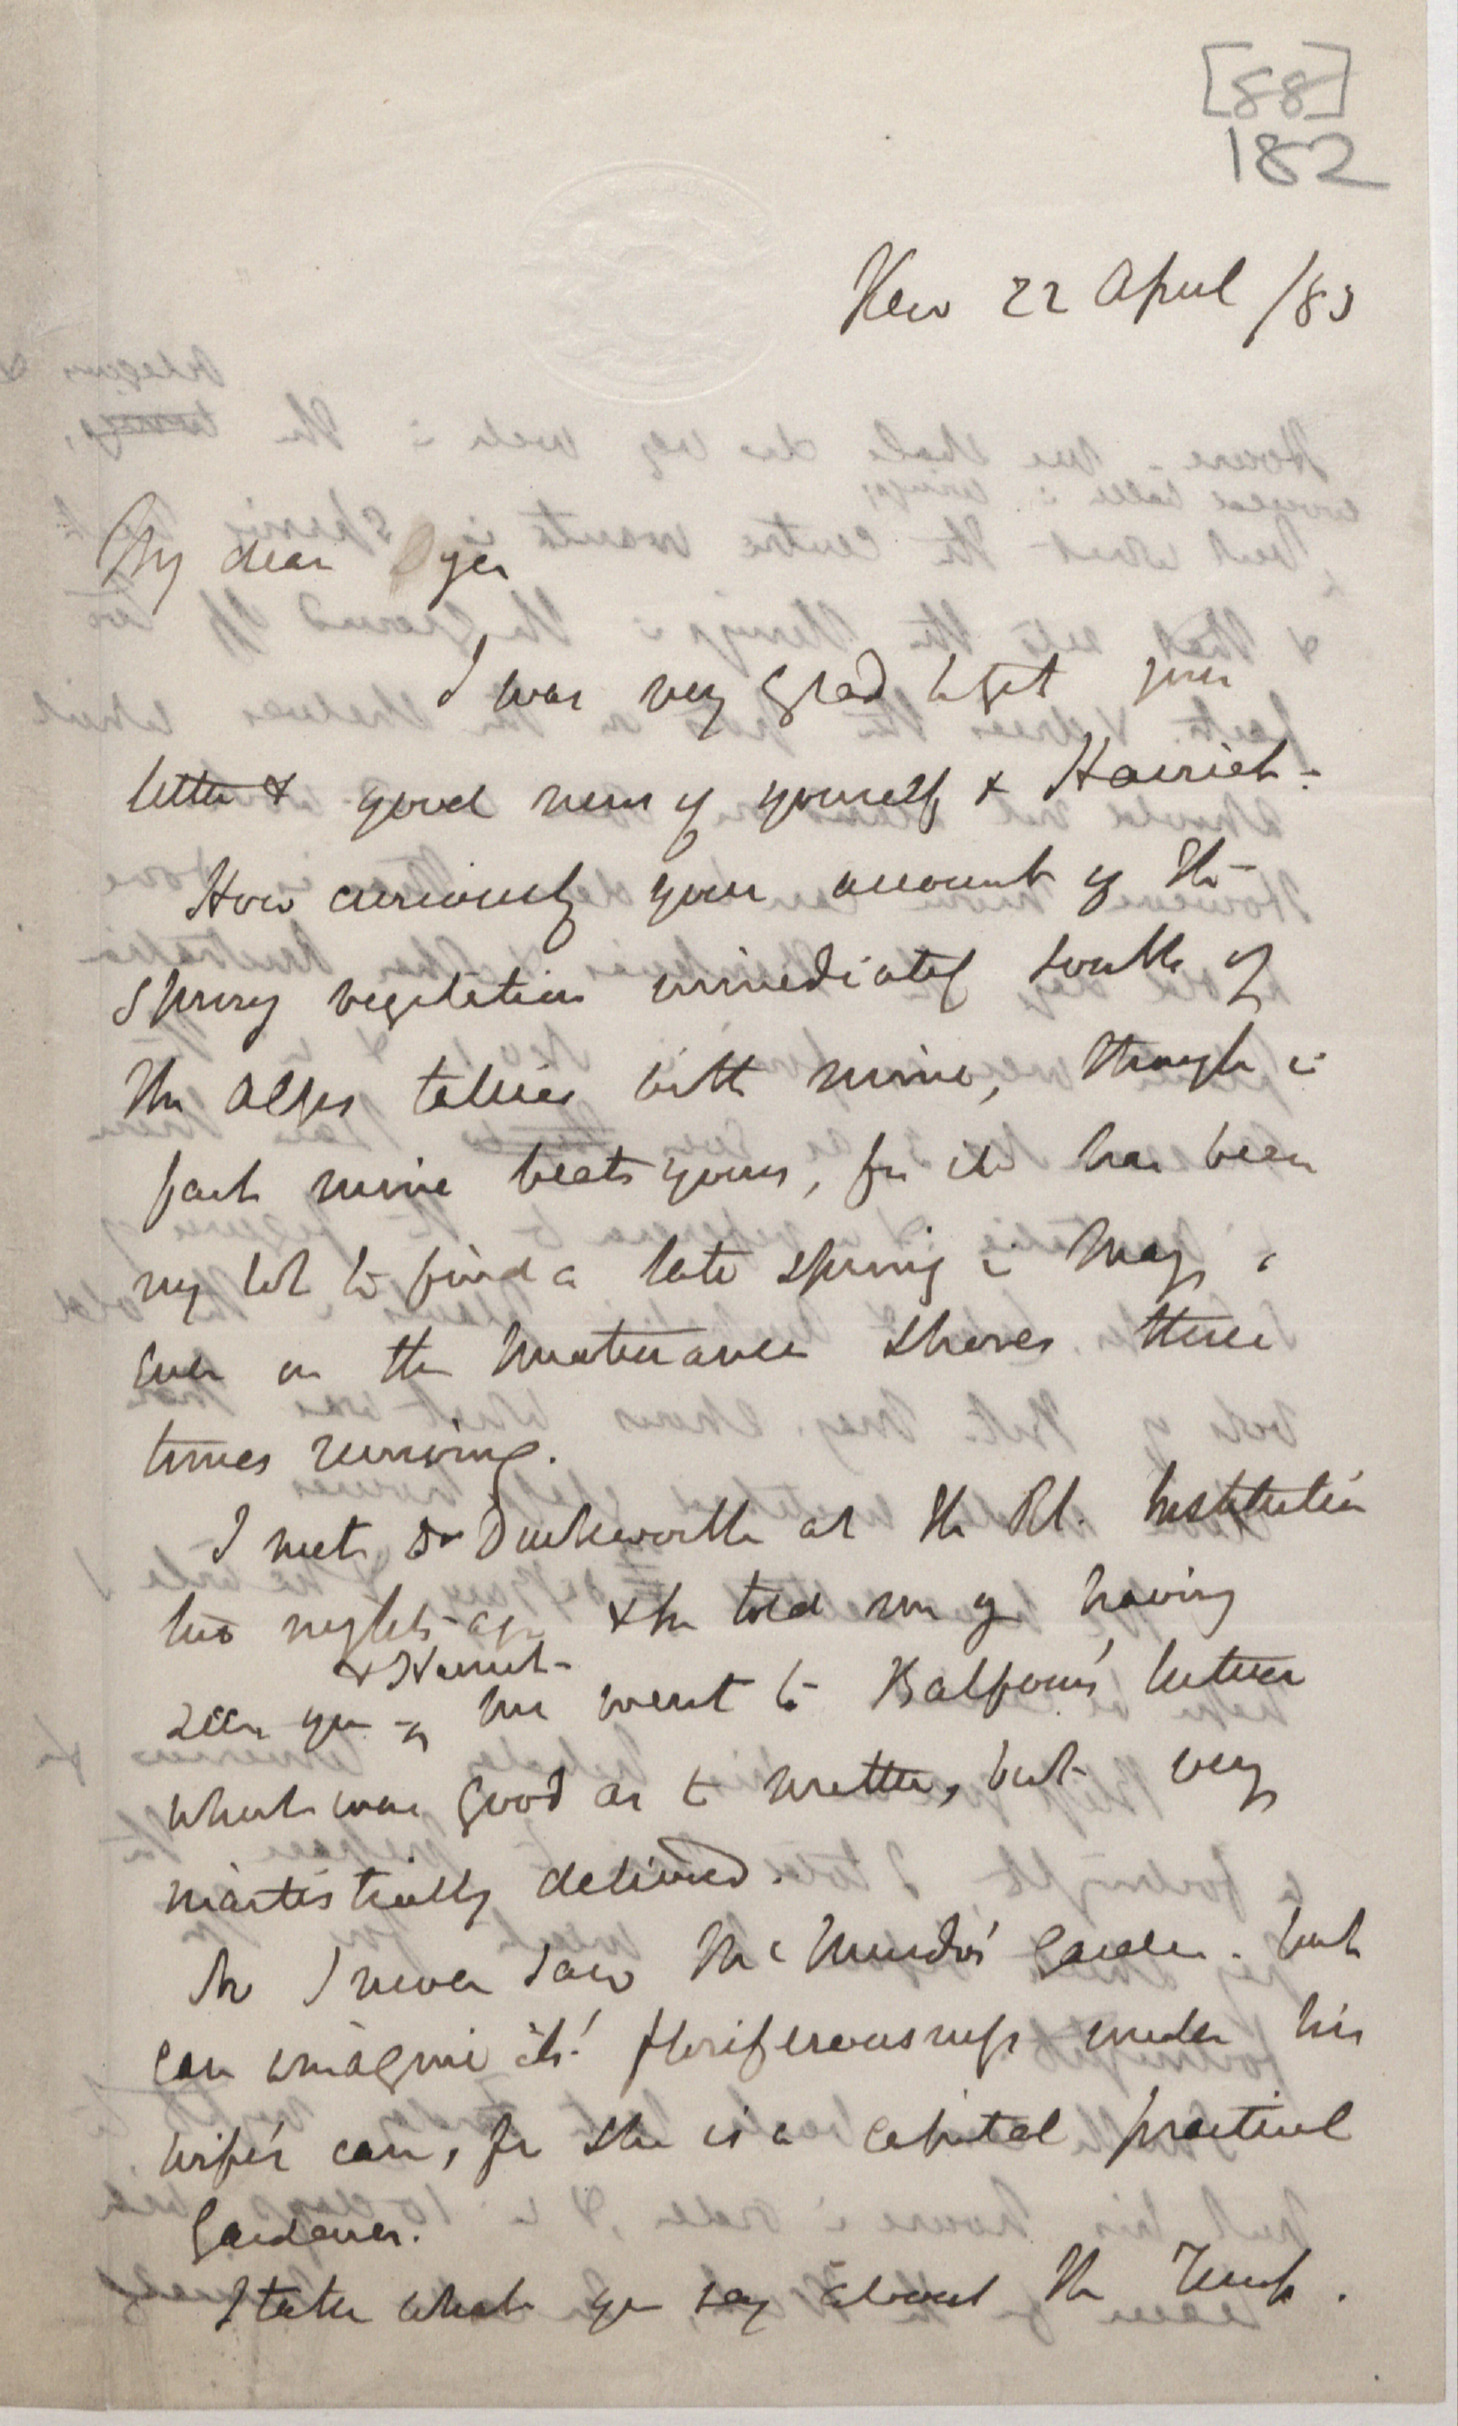 [88]
182
Kew 22 April /83
My dear Dyer
I was very glad to get your
letter & good news of yourself & Harriet.
How curiously your account of the
spring vegetation immediately south of
the Alps tallies with mine, though in
fact mine beats yours, for it has been
my lot to find a late spring in May,
even on the shores three
times running.
I met Dr Duckworth at the Rl. Institution
two nights ago & he told me of having
& Harriet
seen you — we went to Balfour's lecture
which was good as to matter, but very
inartistically delivered.
No I never saw McMurdo's Garden. but
can imagine its' floriferousness under his
wife's care, for she is a capital practical
Gardener.
I take what you say about the Temp.